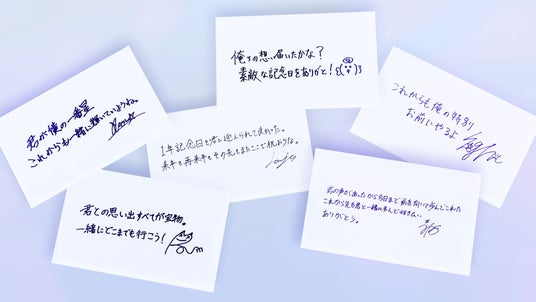 俺らの想い届いたかな？
素敵な記念日をありがと！
君が俺の一番星
これからも一緒に輝いていようね。
これからも俺の特別
お前にやるよ
1年記念日を君と迎えられて良かった。
来年も再来年もその先もまたここで祝おうな。
君の声があったから今日まで前を向いて歩んでこれた
これから先も君と一緒に歩んで行きたい
ありがとう。
君との思い出すべてが宝物。
一緒にどこまでも行こう！